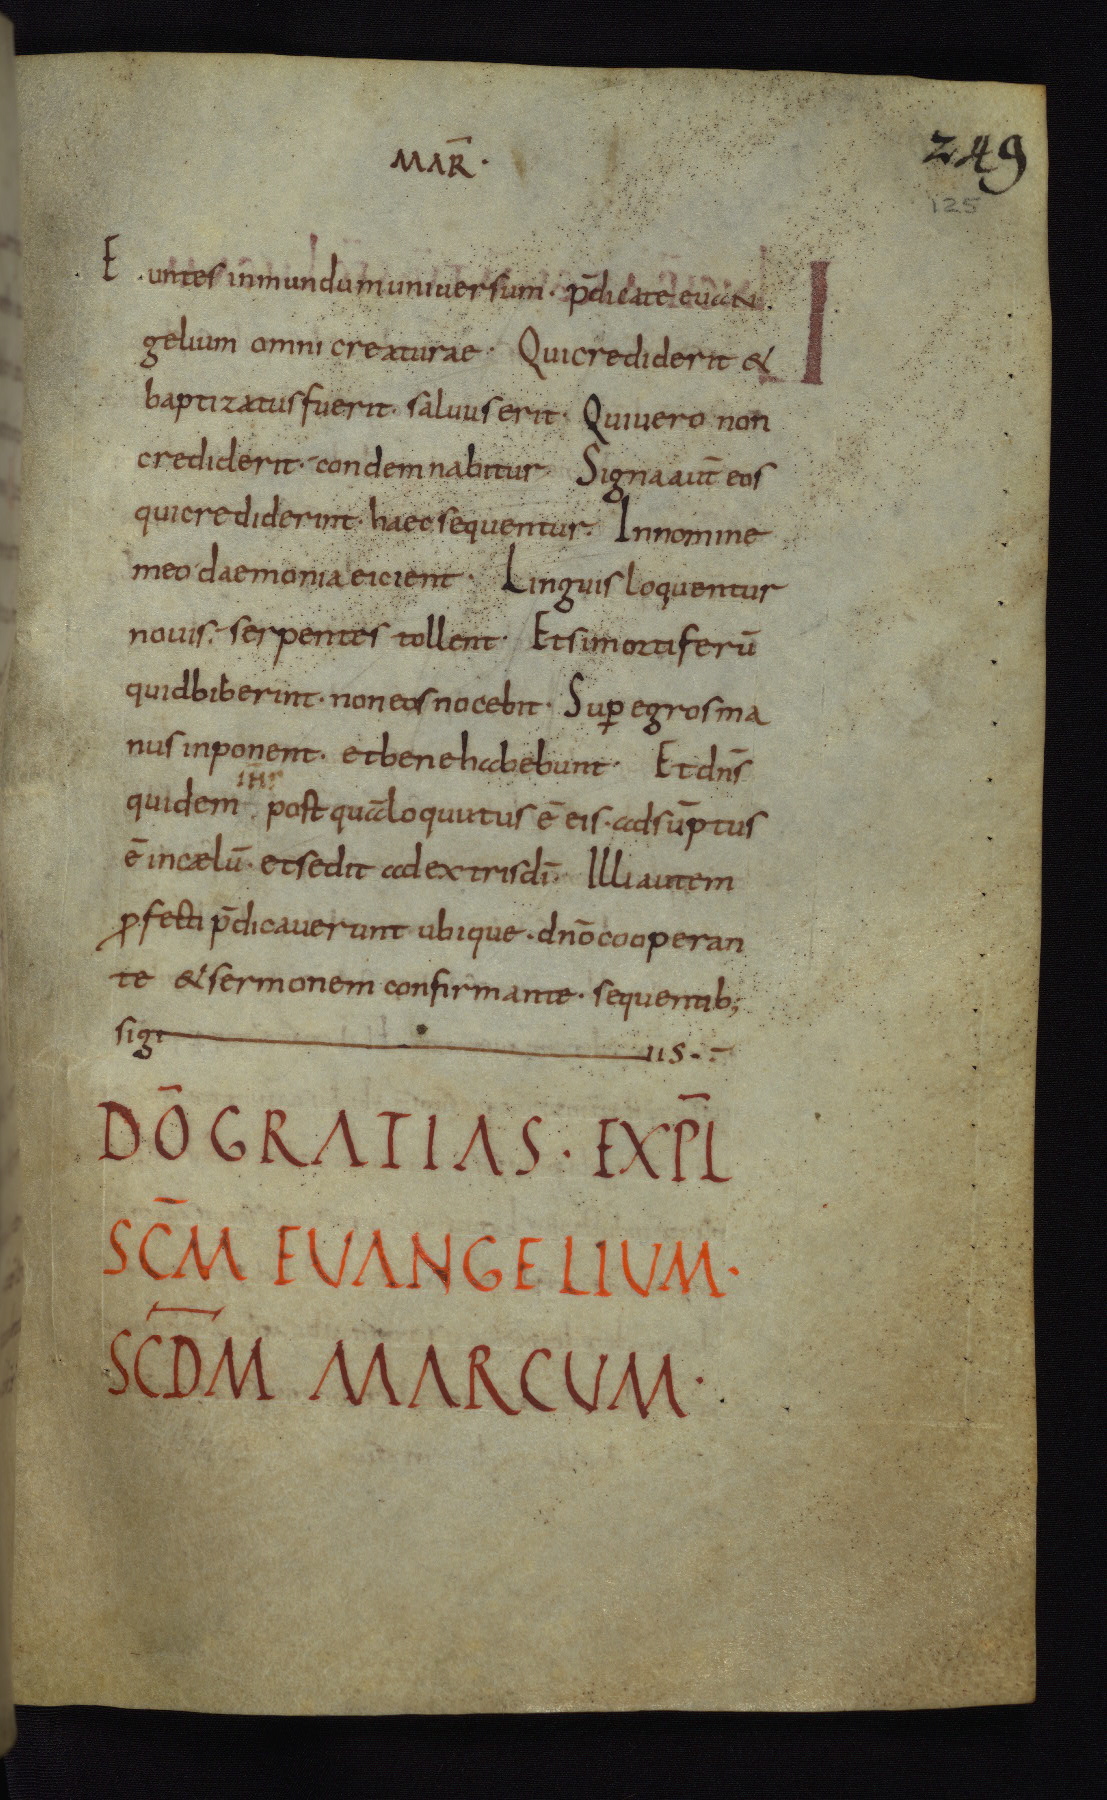 MAR̄·
249
125
Euntes inmundum universum· p̄dicate euan
gelium omni creaturae· Qui crediderit &
baptizatus fuerit· saluus erit· Qui uero non
crediderit· condemnabitur Signa aut̄ eos
qui crediderint· haec sequentur· In nomine
meo daemonia eicient· Linguis loquentur
nouis· serpentes tollent· Et si mortiferū
quid biberint· non eos nocebit· Suꝑ egros ma
nus inponent· et bene habebunt· Et dn̄s
quidem ih̄s post quā loquutus ē eis· adsūptus
ē in cælū· et sedit a dextris dī· Illi autem
ꝓfecti p̄dicauerunt ubique· dn̄o cooperan
te & sermonem confirmante· sequentib;
sig nis·
DŌ GRATIAS· EXP̄L
SC̄M EUANGELIUM·
SC̄D̄M MARCUM·